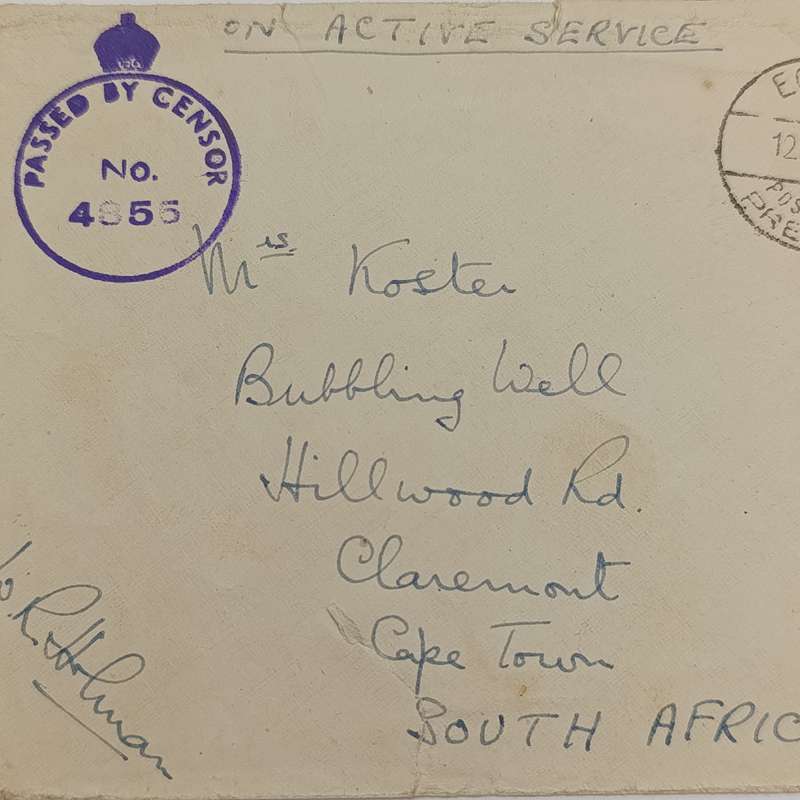 ON ACTIVE SERVICE
PASSED BY CENSOR
No.
4855
12
PRE
Mrs Koster
Bubbling Well
Hillwood Rd.
Claremont
Cape Town
SOUTH AFRIC
R. Holman